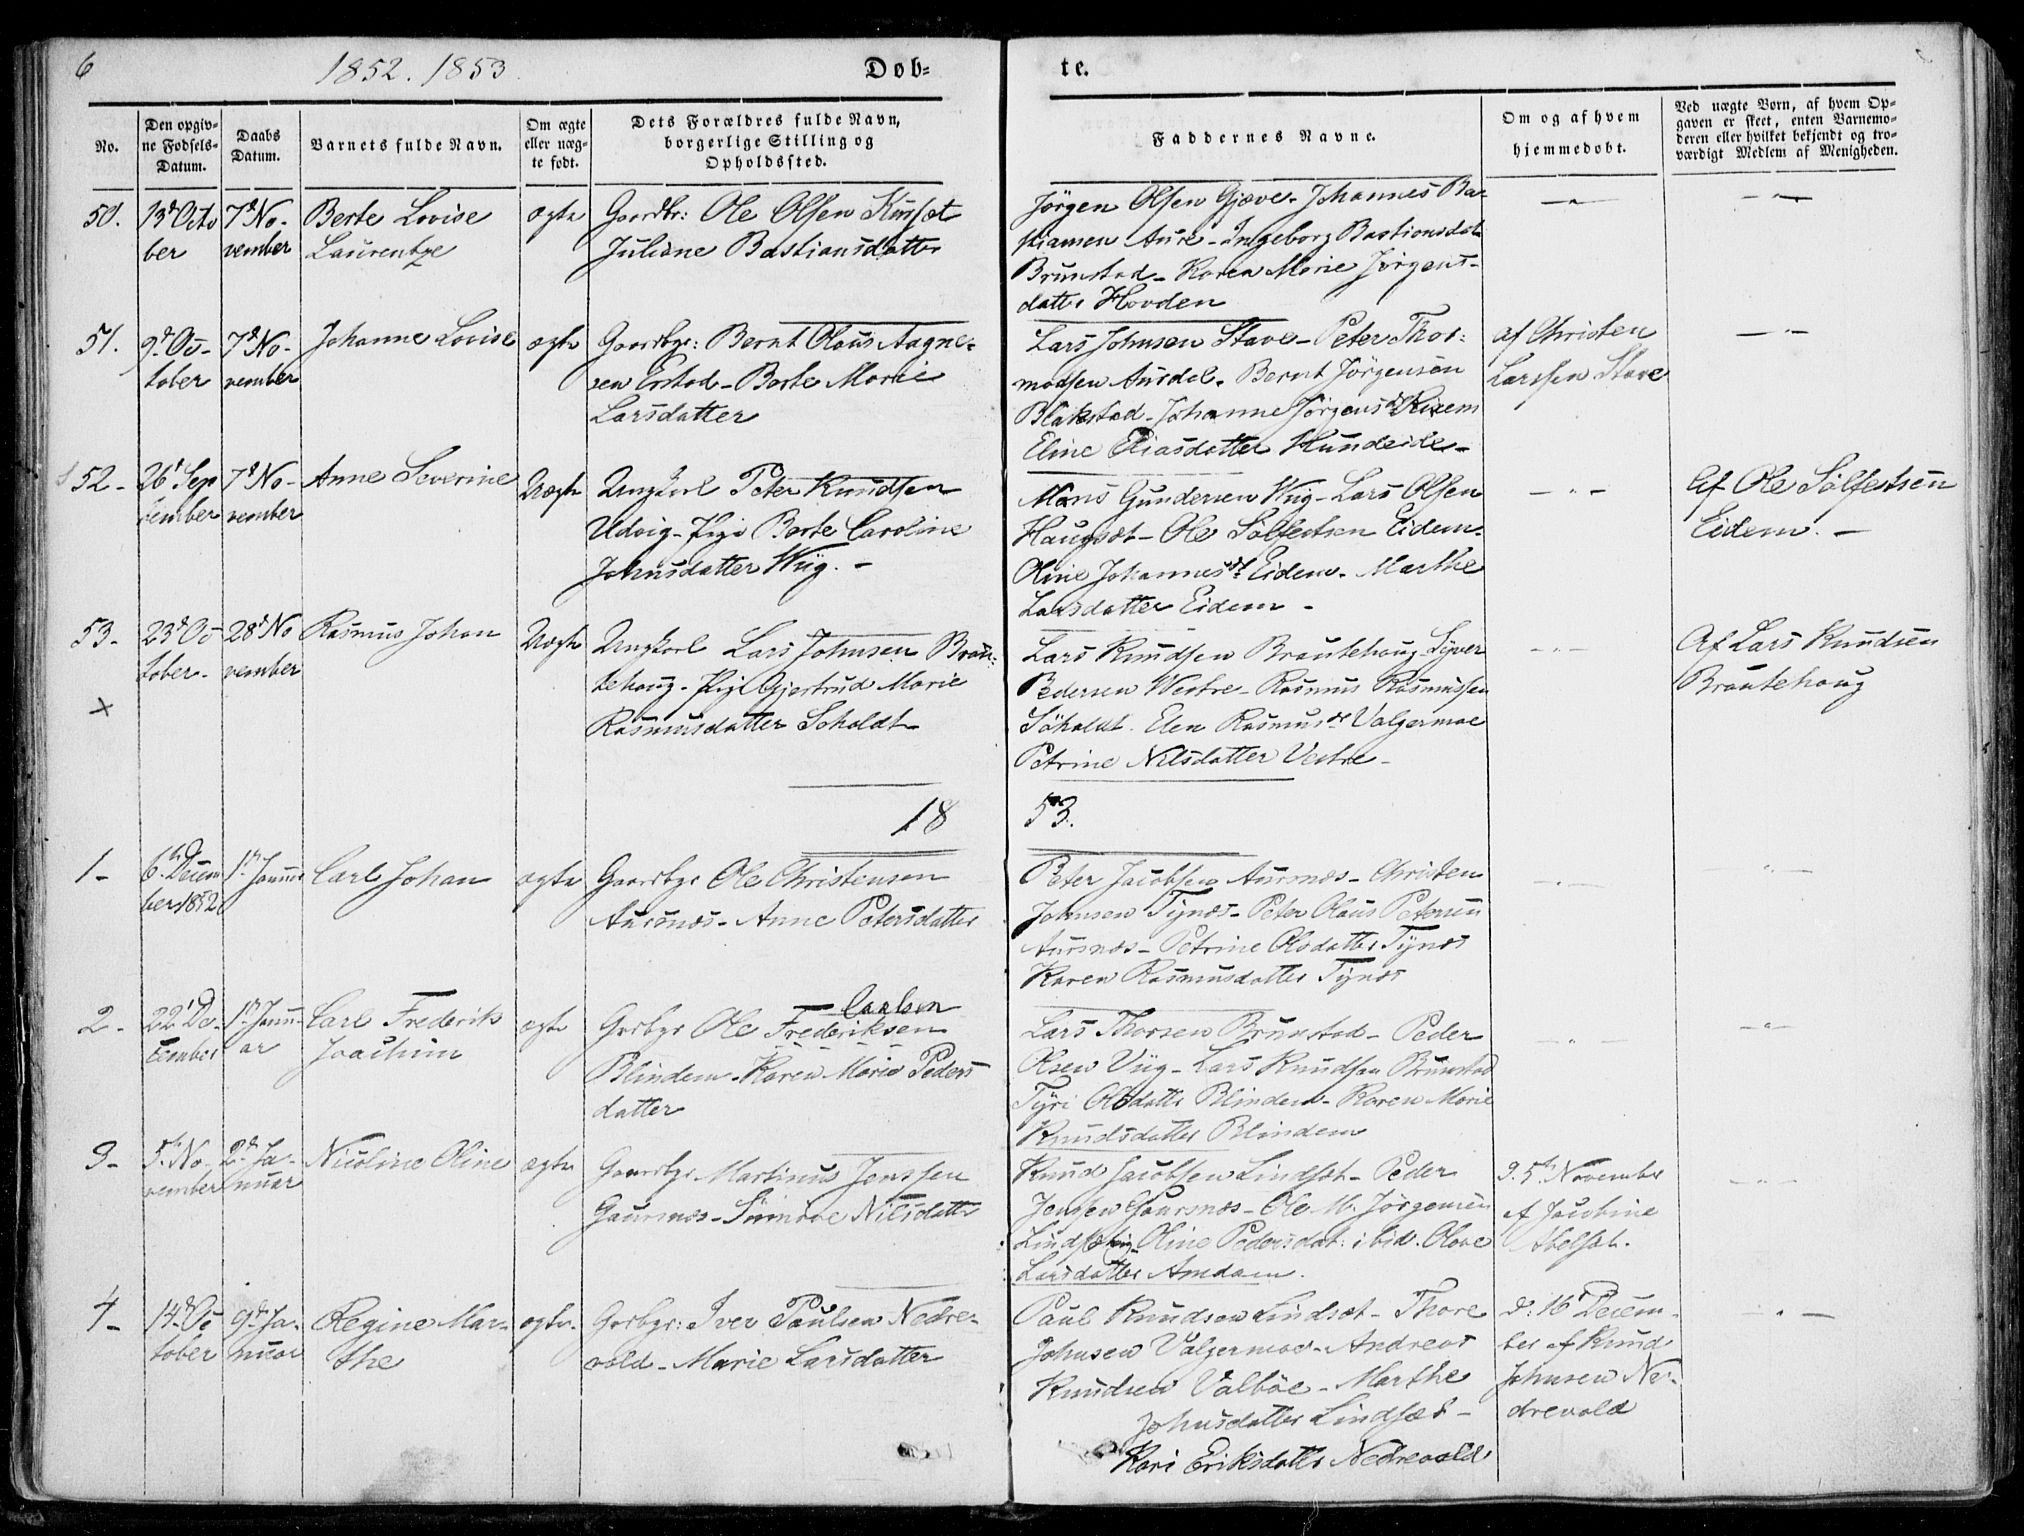 6
1852. 1853.
Døb=
te.
No.
Den opgiv=
ne Fødsels=
Datum.
Daabs
Datum.
Barnets fulde Navn.
Om ægte
eller uæg=
te født.
Dets Forældres fulde Navn,
borgerlige Stilling og
Opholdssted.
Faddernes Navne.
Om og af hvem
hjemmedøbt.
Ved uægte Børn, af hvem Op=
gaven er skeet, enten Barnemo=
deren eller hvilket bekjendt og tro=
værdigt Medlem af Menigheden.
50.
13d Octo
ber
7d No-
vember
Berte Lovise
Laurentze
ægte
Gaardbr: Ole Olsen
Juliane Bastiansdatter
Jørgen Olsen Gjæve. Johannes Ba-
Aure - Ingeborg Bastiansdat
Brunstad - Karen Marie Jørgens-
datter Hovden
51.
9d Oc-
tober
7d No-
vember
Johanne Lovise
ægte
Gaardbgr: Bernt Olaus Aagne-
sen Erstad - Berte Marie
Larsdatter
Lars Johnsen Stave - Peter Thor-
modsen Aurdal. Bernt Jørgensen
Blakstad - Johanne Jørgensd
Eline Eliasdatter Hundeide -
af Christen
Larssen Stave
52 -
26d Sep
tember
7d No-
vember
Anne Severine
Uægte
Ungkarl Peter Knudsen
Udvig - Pige Berte Caroline
Johnsdatter Wiig. -
Mons Gundersen Wiig - Lars Olsen
Haugset - Ole Sølfestsen Eidem.
Oline Johannesdt Eidem. Marthe
Larsdatter Eidem -
Af Ole Sølfestsen
Eidem. -
53 -
23d Oc
tober -
28d No
vember
Rasmus Johan
Uægte
Ungkarl Lars Johnsen Brau-
tehaug - Pige Gjertrud Marie
Rasmusdatter Søholdt
Lars Knudsen Brautehaug Syver
Pedersen Westre - Rasmus Rasmussen
Søholdt. Elen Rasmusdt Valgermoe
Petrine Nilsdatter Vestre -
Af Lars Knudsen
Brautehaug
18
53.
1 -
6te Decem
ber 1852
1ste Januar
Carl Johan
ægte
Gaardbgr Ole Christensen
Aursnæs - Anne Petersdatter
Peter Jacobsen Aursnæs - Christen
Johnsen Tynæs - Peter Olaus Petersen
Aursnæs - Petrine Olsdatter Tynæs
Karen Rasmusdatter Tynæs
2 -
22d De-
cember
1ste Janu-
ar
Carl Frederik
Joachim
ægte
Carlsen
Grdbgr Ole Frederiksen
Blindem - Karen Marie Peders
datter
Lars Thorsen Brunstad - Peder
Olsen Viig - Lars Knudsen Brunstad
Tyri Olsdatter Blindem - Karen Marie
Knudsdatter Blindem
3 -
5te No
vember
2d Ja-
nuar
Nicoline Oline
ægte
Gaardbgr Martinus Jenssen
Gaursnæs - Nilsdatter
Knud Jacobsen Lindset - Peder
Jensen Gaursnæs - Ole M. Jørgensen
Oline Pedersdat: ibid. Olave
Larsdatter Amdam.
d. 5te November
af Jacobine
4 -
14d Oc
tober
9d Ja-
nuar
Regine Mar-
the
ægte.
Grdbgr: Iver Paulsen Nedre-
vold - Marie Larsdatter
Paul Knudsen Lindset - Thore
Johnsen Valgermoe - Andreas
Knudsen Valbøe - Marthe
Johnsdatter Lindset -
Kari Eriksdatter Nedrevold
d: 16d Decem-
ber af Knud
Johnsen Ne-
drevold